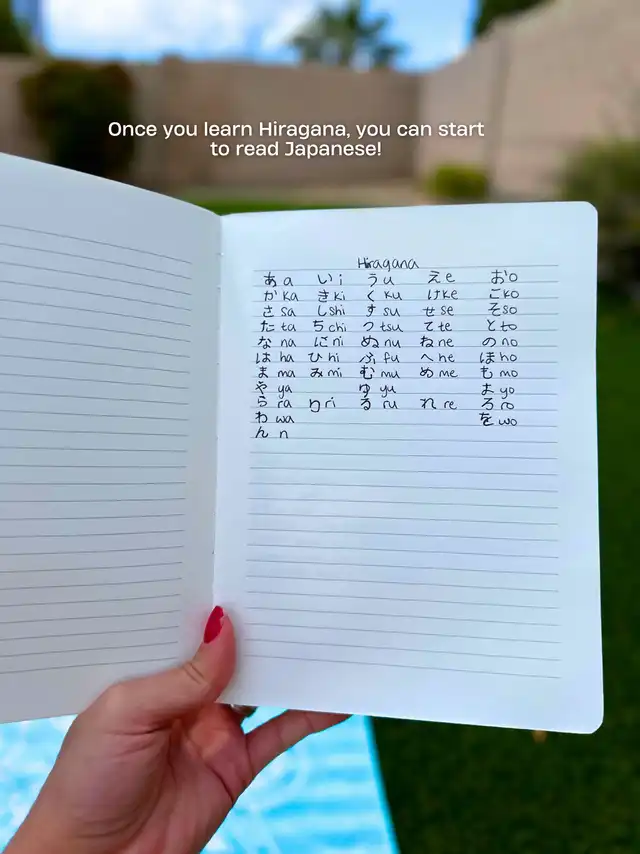 Once you learn Hiragana, you can start
to read Japanese!
Hiragana
あ a い i う u え e お o
か ka き ki く ku け ke こ ko
さ sa し shi す su せ se そ so
た ta ち chi つ tsu て te と to
な na に ni ぬ nu ね ne の no
は ha ひ hi ふ fu へ he ほ ho
ま ma み mi む mu め me も mo
や ya ゆ yu よ yo
ら ra り ri る ru れ re ろ ro
わ wa を wo
ん n